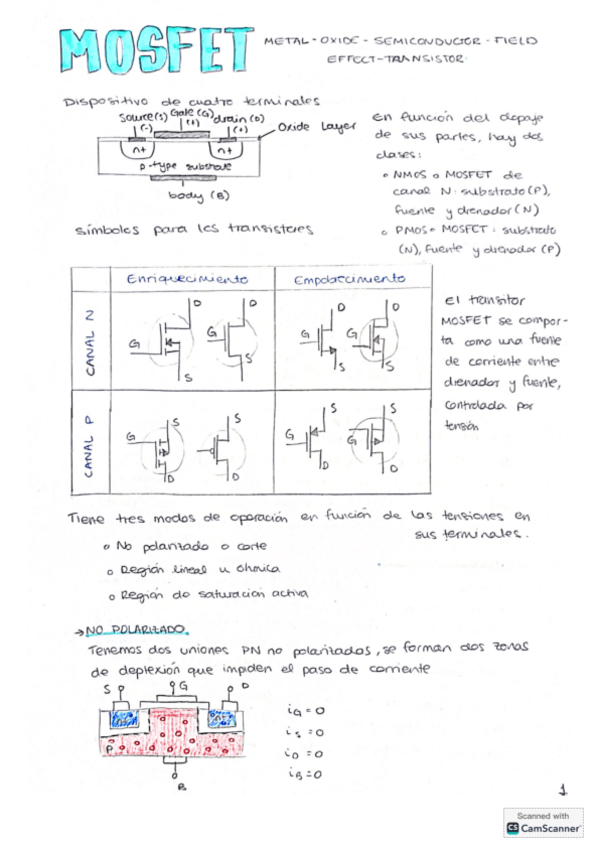 MOSFET METAL-OXIDE-SEMICONDUCTOR-FIELD
EFFECT-TRANSISTOR.
Dispositivo de cuatro terminales
Source(s) Gate (G) drain (D)
(-) (+) (+)
Oxide Layer
n+ n+
p-type substrate
body (B)
En función del dopaje
de sus partes, hay dos
clases:
o NMOS o MOSFET de
canal N: substrato(P),
fuente y drenador(N)
o PMOS o MOSFET: substrato
(N), fuente y drenador (P)
símbolos para los transistores
Enriquecimiento Empobrecimiento
CANAL N
D D D D
G G G G
S S S S
CANAL P
S S S S
G G G
D D D D
El transitor
MOSFET se compor-
ta como una fuente
de corriente entre
drenador y fuente,
controlada por
tensón
Tiene tres modos de operación en función de las tensiones en
sus terminales.
o No polarizado o corte
o Región lineal u óhmica
o Región de saturación activa
→ NO POLARIZADO.
Tenemos dos uniones PN no polarizadas, se forman dos zonas
de deplexión que impiden el paso de corriente
S G D
P
B
iG = 0
iS = 0
iD = 0
iB = 0
1
Scanned with
CS CamScanner